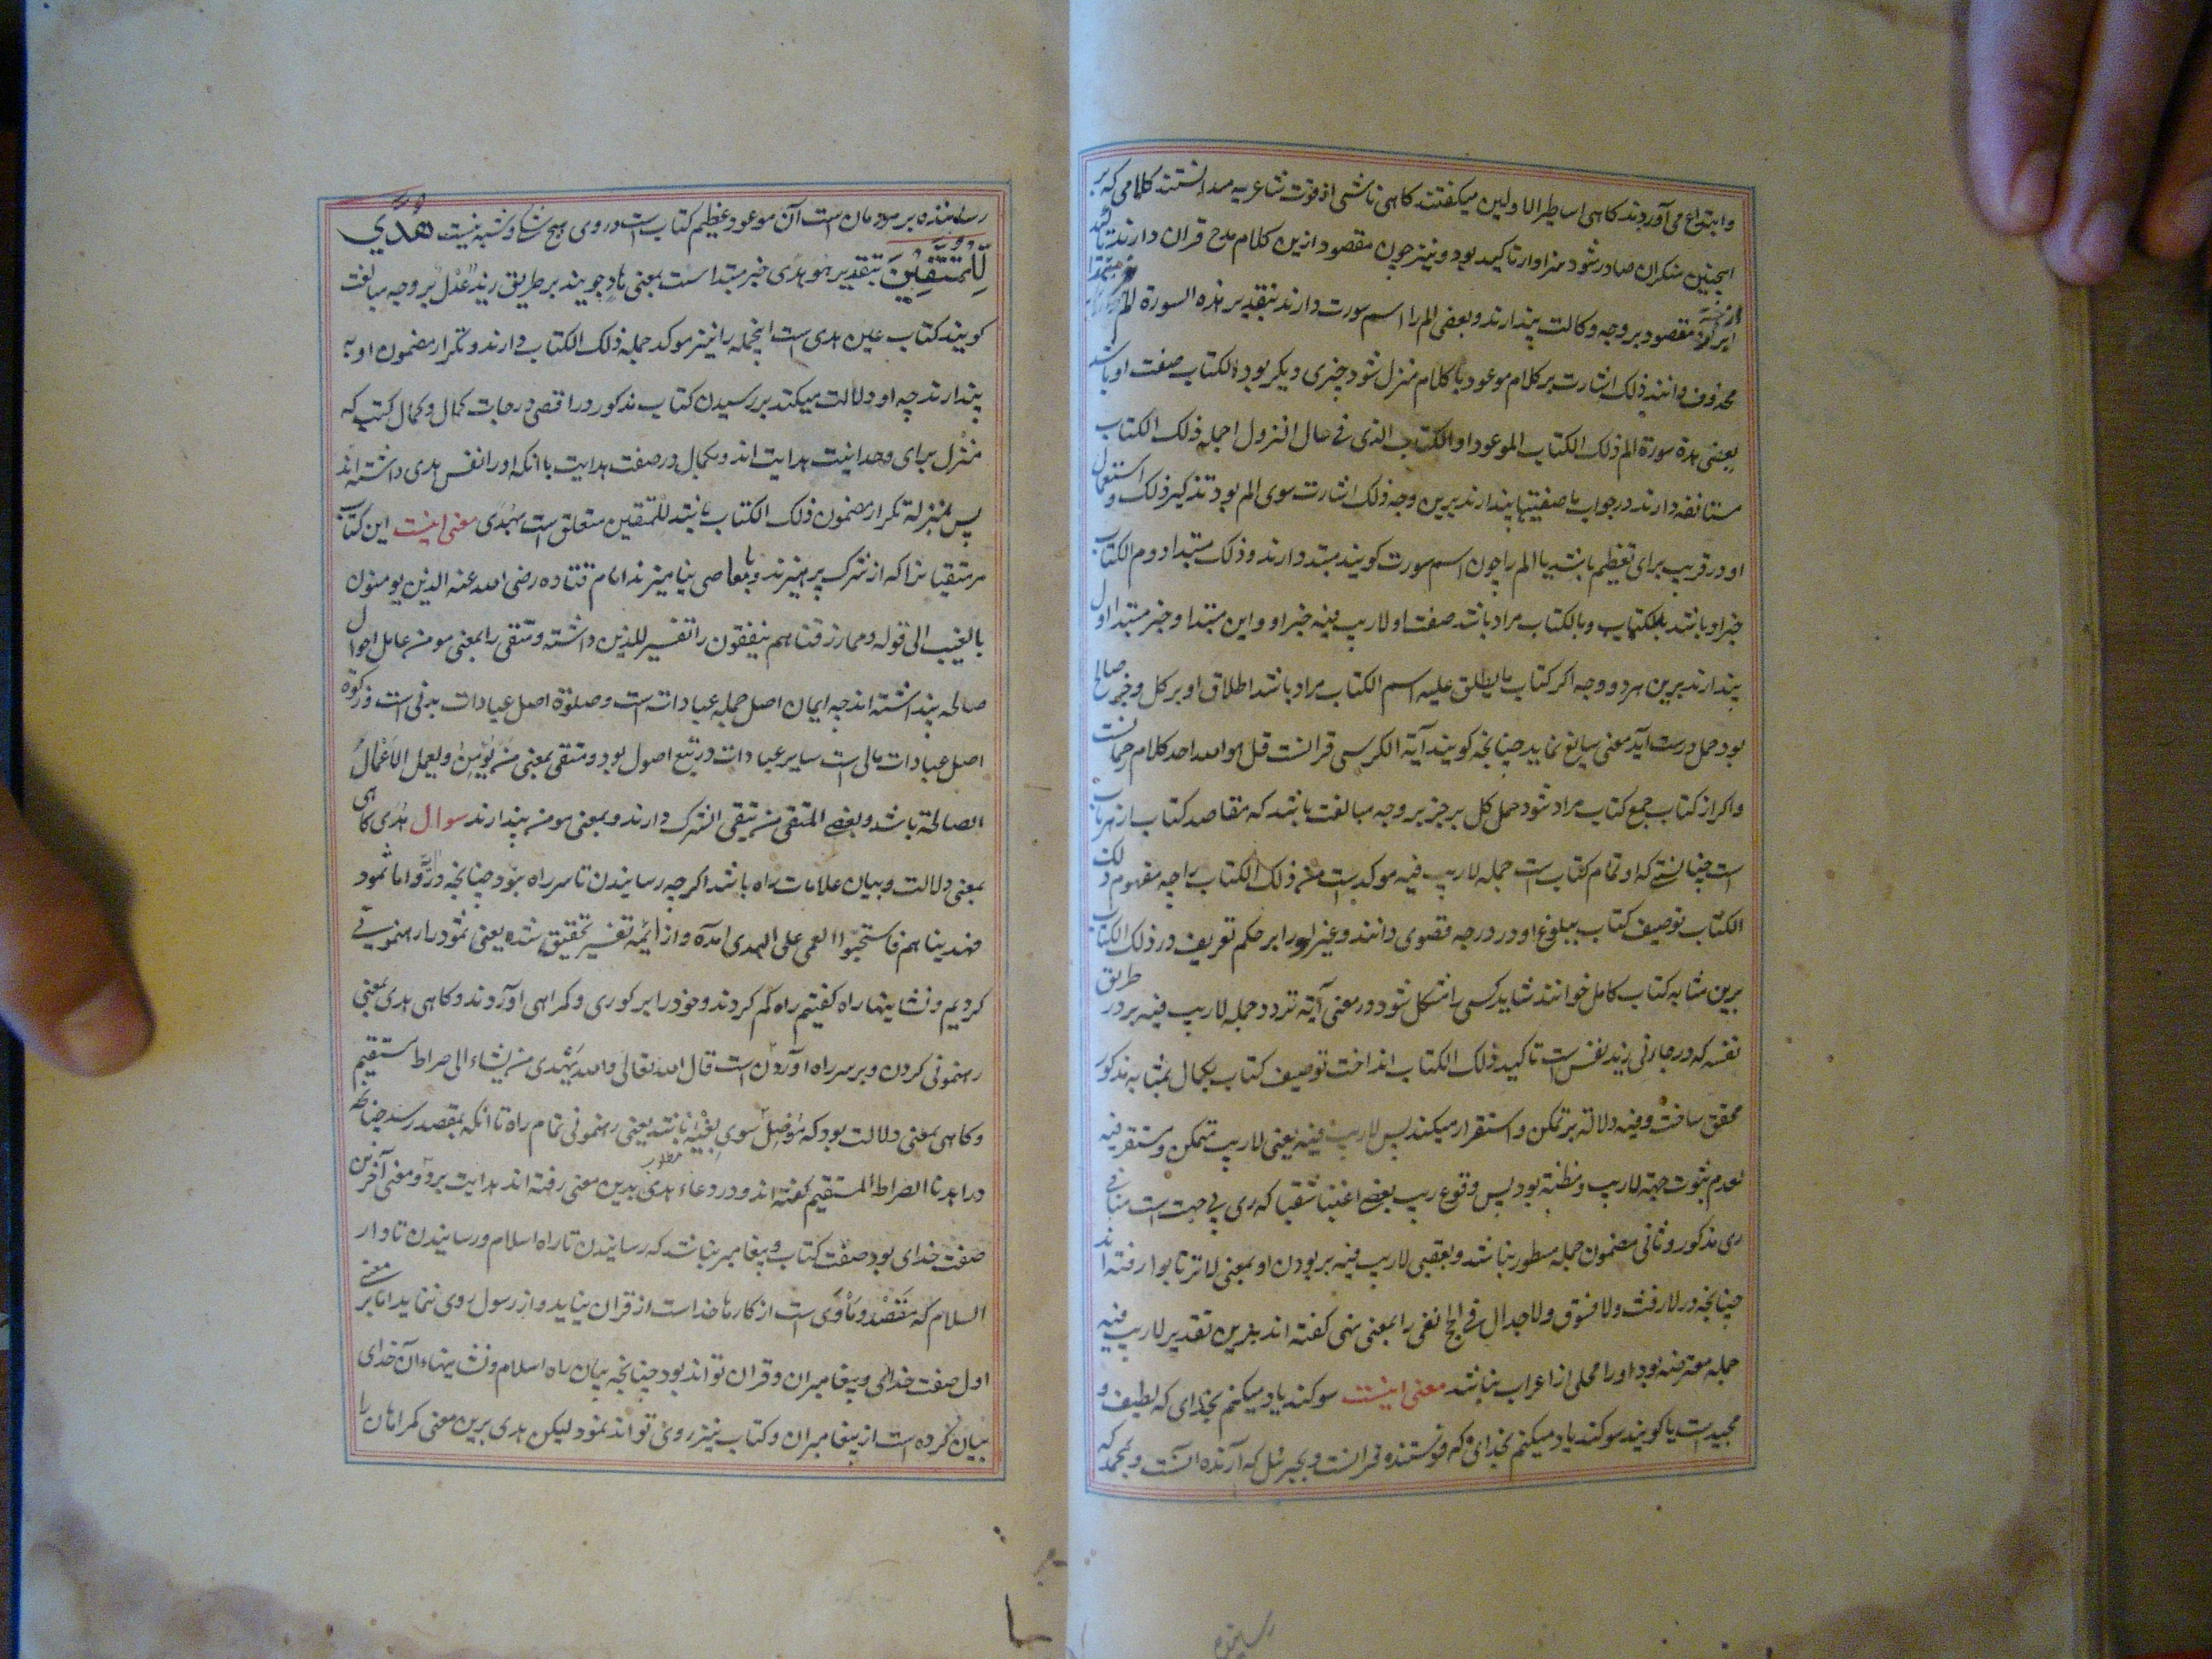 و ابتداع می آوردند کاهی اساطیر الاولین میکفتند کاهی ناشی از قوت شاعریه میدانستند کلامی که بر
اینچنین منکران صادر شود سزاوار تاکید بود و نیز چون مقصود ازین کلام مدح قران دارند
مقصود بر وجه وکالت پندارند و بعضی الم را اسم سورت دارند بتقدیر هذه السورة الم
محذوف دانند ذلک اشارت بر کلام موعود یا کلام منزل شود چیزی دیکر بود و الکتاب صفت او باشد
یعنی هذه سورة الم ذلک الکتاب الموعود او الکتاب الذی فی حال النزول جمله ذلک الکتاب
مستانفه دارند در جواب ما صفتیها پندارند برین وجه ذلک اشارت سوی الم بود تذکیر ذلک و استعمال
او در قریب برای تعظیم باشد یا الم را چون اسم سورت کویند مبتدا دارند و ذلک مبتدا دوم الکتاب
خبر او باشد یا الکتاب و بالکتاب مراد باشد صفت او لا ریب فیه خبر او و این مبتدا و خبر مبتدا اول
پندارند برین هر دو وجه اکر کتاب ما یطلق علیه اسم الکتاب مراد باشد اطلاق او بر کل و جزء صالح
بود حمل درست آید معنی سایغ نماید چنانچه کویند آیة الکرسی قرانست قل هو الله احد کلام رحمانست
و اکر از کتاب جمع کتاب مراد شود حمل کل بر جزء بر وجه مبالغت باشد که مقاصد کتاب از هر باب
است چنانستی که او تمام کتاب است جمله لا ریب فیه موکد است من ذلک الکتاب را چه مفهوم ذلک
الکتاب توصیف کتاب ببلوغ او در درجه قصوی دانند و غیر او را بر حکم تعریف در ذلک الکتاب
برین مثابه کتاب کامل خوانند شاید کسی را مشکل شود در معنی آیة تردد و جمله لا ریب فیه بر در طریق
نفسه که در جاءنی زید نفسه است تاکید ذلک الکتاب انداخت توصیف کتاب بکمال بمثابه مذکور
محقق ساخت و فیه دلالة بر تمکن و استقرار میکند پس لا ریب فیه یعنی لا ریب متمکن و مستقر فیه
لعدم ثبوت جهة لا ریب و مظنة بود پس وقوع ریب بعضی اغبیا شقیا که ری بی جهت است منافی
ری مذکور و ثانی مضمون جمله مسطور نباشد و بعضی لا ریب فیه بر بودن او بمعنی لا ترتابوا رفته اند
چنانچه در لا رفث و لا فسوق و لا جدال فی الحج نفی را بمعنی نهی کفته اند برین تقدیر لا ریب فیه
جمله معترضه بود او را محلی از اعراب نباشد معنی اینست سوکند یاد میکنم بخدای که لطیف و
مجید است یا کویند سوکند یاد میکنم بخدای که فرستنده قرانست و بجبرئیل که آرنده انست و بمحمد که
رسانیده
رسانیده بر مردمان است آن موعود عظیم کتاب است در وی هیچ شک و شبه نیست هُدًی
لِّلْمُتَّقِیْنَ بتقدیر هو هدی خبر مبتدا است بمعنی هاد جویند بر طریق زید عدل بر وجه مبالغت
کویند کتاب عین هدی است اینجمله را نیز موکد جمله ذلک الکتاب دارند و تکرار مضمون او به
پندارند چه او دلالت میکند بر رسیدن کتاب مذکور در اقصی درجات کمال و کمال کتب که
منزل برای وحدانیت هدایت اند و بکمال در صفت هدایت با انکه او را نفس هدی داشته اند
پس بمنزله تکرار مضمون ذلک الکتاب باشد للمتقین متعلق است بهدی معنی اینست این کتاب
مر متقیانرا که از شرک پرهیزند و بمعاصی نیامیزند امام قتاده رضی الله عنه الذین یومنون
بالغیب الی قوله و مما رزقناهم ینفقون را تفسیر للذین داشته و متقی را بمعنی مومن عامل احوال
صالحه پنداشته اند چه ایمان اصل جمله عبادات است و صلوة اصل عبادات بدنی است و زکوة
اصل عبادات مالی است سایر عبادات در تبع اصول بود و متقی بمعنی من یؤمن و یعمل الاعمال
الصالحة باشد و بعضی المتقی من یتقی الشرک دارند و بمعنی مومن پندارند سوال هدی کاهی
بمعنی دلالت و بیان علامات راه باشد اکرچه رسانیدن تا سر راه نبود چنانچه در و اما ثمود
فهدیناهم فاستحبوا العمی علی الهدی آمده و از ائمه تفسیر تحقیق شده یعنی ثمود را رهنمونی
کردیم و نشاینها راه کفتیم راه کم کردند و خود را بر کوری و کمراهی آوردند و کاهی هدی بمعنی
رهنمونی کردن و بر سر راه آوردن است قال الله تعالی و الله یهدی من یشاء الی صراط مستقیم
و کاهی بمعنی دلالت بود که موصل سوی بغیه باشد یعنی رهنمونی تمام راه تا انکه بمقصد رسد چنانچه
در اهدنا الصراط المستقیم کفته اند و در دعاء هدی بدین معنی رفته اند هدایت برد و معنی آخرین
مطلوب
صفت خدای بود صفت کتاب و پیغامبر نباشد که رسانیدن تا راه اسلام و رسانیدن تا دار
السلام که مقصد و ماوی است از کارها خداست از قران نیاید و از رسول روی ننماید اما بر معنی
اول صفت خدای و پیغامبران و قران تواند بود چنانچه بیان راه اسلام و نشاینهاء آن خدای
بیان کرده است از پیغامبران و کتاب نیز روی تواند نمود لیکن هدی برین معنی کمراهان را